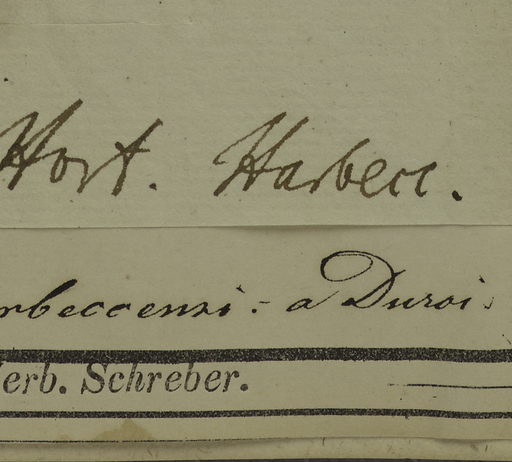 Hort. Harbecc.
rbeccensi. - a Duroi.
Herb. Schreber.